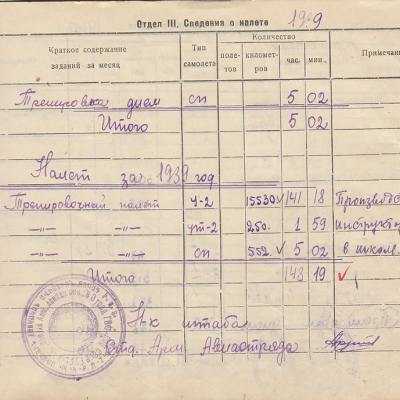 Отдел III. Сведения о налете 1939
Краткое содержание заданий за месяц
Тип самолета
Количество
полетов
километров
час.
мин.
Примечани
Тренировка днем сп 5 02
Итого 5 02
Налет за 1939 год
Тренировочный налет У-2 15530 141 18 Производс
—„— —„— ут-2 250. 1 59 инструктор
—„— —„— сп 552 5 02 в школе.
Итого 148 19
Н-к штаба
Отд. Арм Авиаотряда